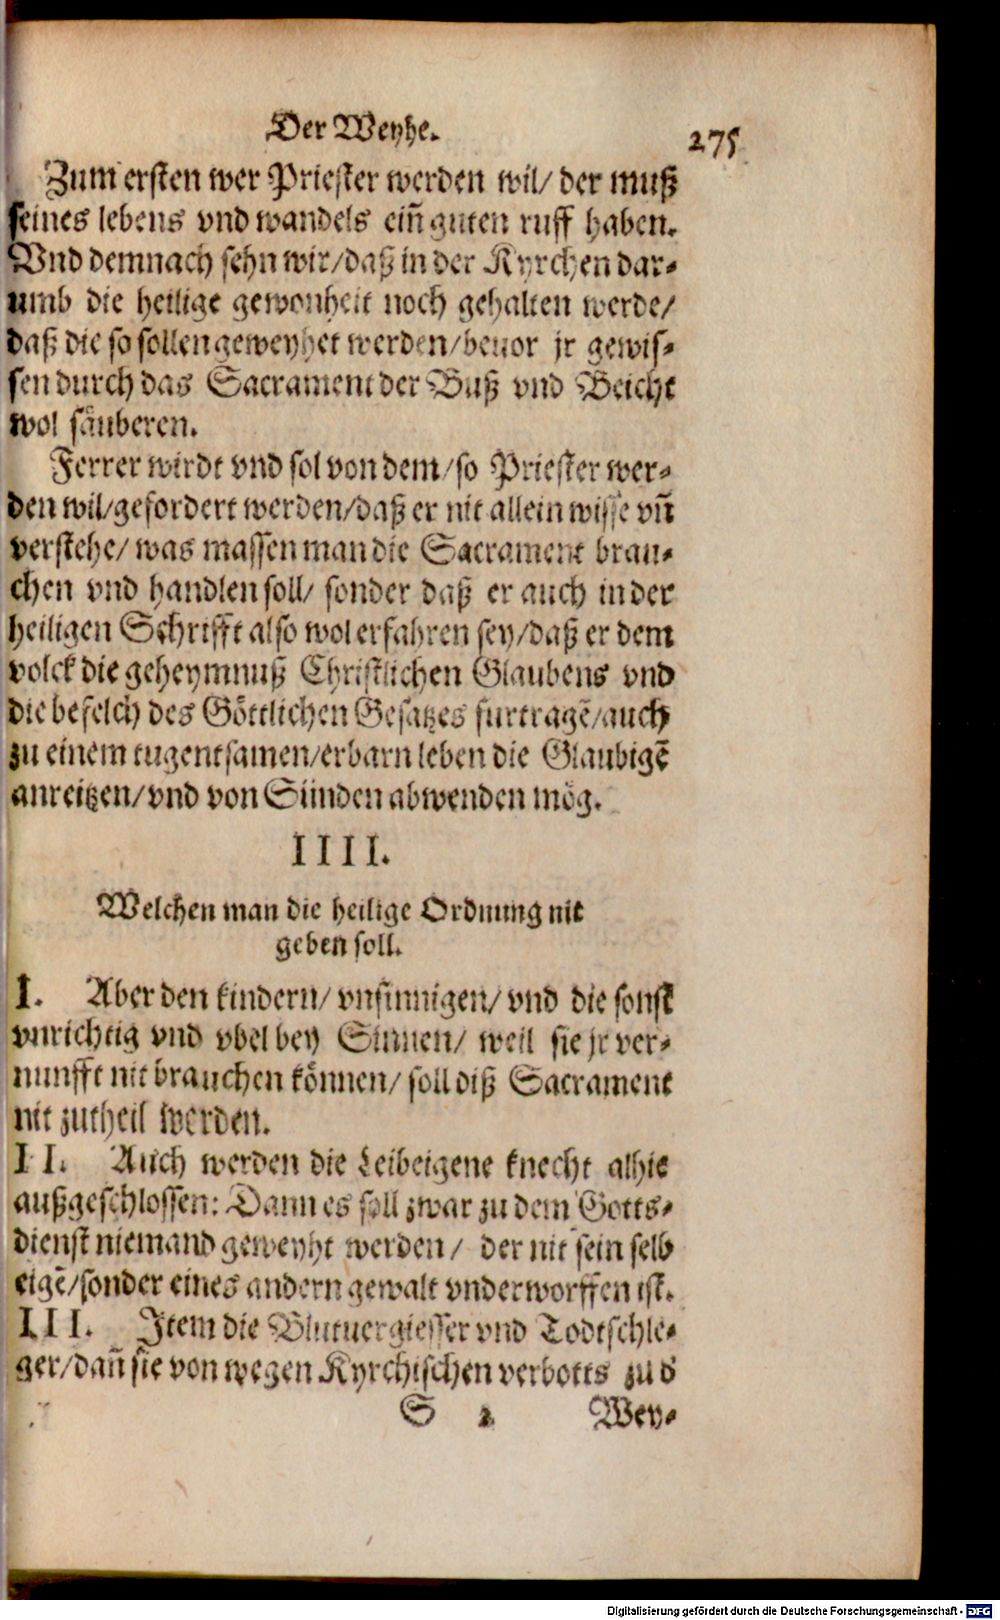 Der Weyhe.
275
Zum ersten wer Priester werden wil/ der muß
seines lebens vnd wandels ein̄ guten ruff haben.
Vnd demnach sehn wir/ daß in der Kyrchen dar-
umb die heilige gewonheit noch gehalten werde/
daß die so sollen geweyhet werden/ beuor jr gewis-
sen durch das Sacrament der Buß vnd Beicht
wol säuberen.
Ferrer wirdt vnd sol von dem/ so Priester wer-
den wil/ gefordert werden/ daß er nit allein wisse vn̄
verstehe/ was massen man die Sacrament brau-
chen vnd handlen soll/ sonder daß er auch in der
heiligen Schrifft also wol erfahren sey/ daß er dem
volck die geheymnuß Christlichen Glaubens vnd
die befelch des Göttlichen Gesatzes furtragē/ auch
zu einem tugentsamen/ erbarn leben die Glaubigē
anreitzen/ vnd von Sünden abwenden mög.
IIII.
Welchen man die heilige Ordnung nit
geben soll.
I. Aber den kindern/ vnsinnigen/ vnd die sonst
vnrichtig vnd vbel bey Sinnen/ weil sie jr ver-
nunfft nit brauchen können/ soll diß Sacrament
nit zutheil werden.
II. Auch werden die Leibeigene knecht alhie
außgeschlossen: Dann es soll zwar zu dem Gotts-
dienst niemand geweyht werden/ der nit sein selb
eigē/ sonder eines andern gewalt vnderworffen ist.
III. Item die Blutuergiesser vnd Todtschle-
ger/ dan̄ sie von wegen Kyrchischen verbotts zu d
S 2 Wey-
Digitalisierung gefördert durch die Deutsche Forschungsgemeinschaft - DFG